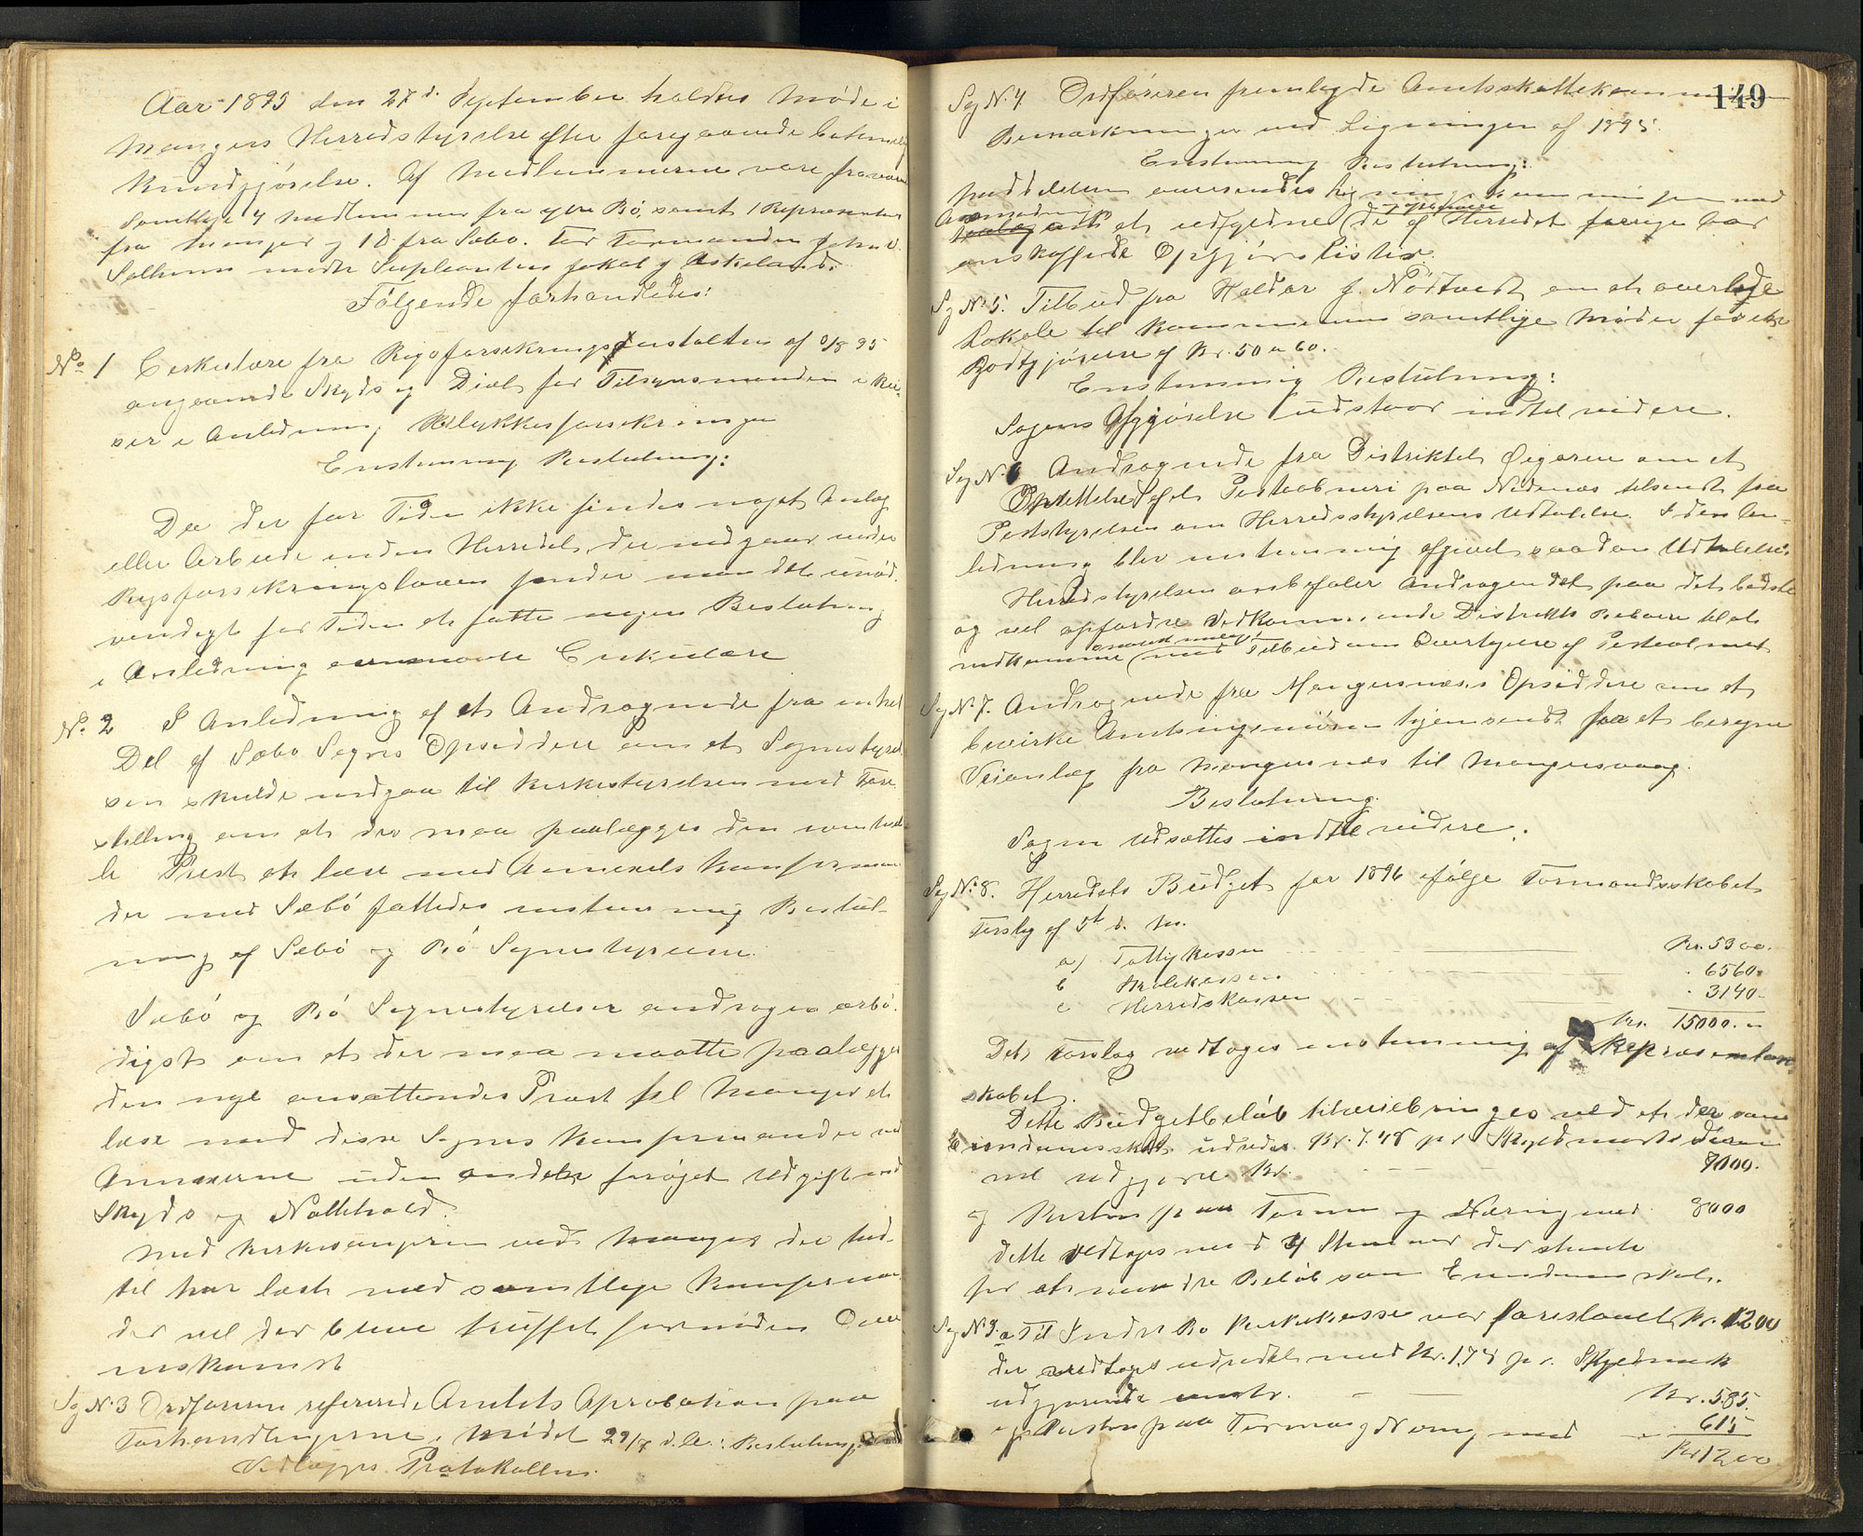 Aar 1895 den 27d. September holdtes Møde i
Mangers Herredstyrelse efter foregaaende betimelig
Kundgjørelse. Af Medlemmerne vare fraværende
Samtlige 4 Medlemmer fra ytre Bø, samt 1 Repræsentant
fra Manger og 1 d. fra Sæbø. For Formanden Johan
Solheim mødte Supleanten Jakob J Askeland.
Følgende forhandledes:
No. 1 Cirkulære fra Rigsforsikringsanstalten af 9/8 95
angaaende Skyds og Diæt for Tilsynsmanden i Rei-
ser i Anledning Ulykkesforsikringen
Enstemmig Beslutning:
Da der for Tiden ikke findes noget Anlæg
eller Arbeide inden Herredet, der indgaar under
Rigsforsikringsloven finder man det unød-
vendigt for Tiden at fatte nogen Beslutning
i Anledning ovennævnte Cirkulære
No. 2 I Anledning af et Andragende fra enkel
Del af Sæbø Sogns Opsiddere om at Sognestyrel
sen skulde indgaa til Kirkestyrelsen med Fore
stilling om at der maa paalægges den vordende
Prest at læse med Annexets Konfirman
der ved Sæbø fattedes enstemmig Beslut-
ning af Sæbø og Bø Sognestyrere.
Sæbø og Bø Sognestyrelser andrager ærbø-
digst om at der maa maatte paalægges
den nye ansættendes Præst til Manger at
læse med disse Sognes Konfirmander ved
Annexerne uden anden forøget Udgift end
Skyds og Nattehold.
Med Kirkesangeren ved Manger der hid-
til har læst med samtlige Konfirman
der vil der blive truffet fornøden Over
enskomst
Sag No. 3 Ordføreren refererede Amtets Aprobation paa
Forhandlingerne i Mødet 29/7 d. A.: Beslutning:
Vedlægges Protokollen.
149
Sag No. 4 Ordføreren fremlagde Amtsskattekom
Bemærkninger ved Ligningen af 1895.
Enstemmig Beslutning:
Meddelelsen oversendes Ligningskommisjonen med
Anmodning at udfylde de af Herredet forrige Aar
anskaffede Opgjørslister.
Sag No. 5. Tilbud fra Haldor J. Nødtvedt om at overlade
Lokale til Kommunens samtlige Møder for en
Godtgjørelse af Kr. 50 a 60.
Enstemmig Beslutning:
Sagens Afgjørelse udstaar indtil videre.
Sag No. 6 Andragende fra Distriktet Øigaren om at
Oprettelse af et Postaabneri paa Nidenæs tilsendt fra
Poststyrelsen om Herredsstyrelsens Udtalelse. I den An-
ledning blev enstemmig afgivet saadan Udtalelse:
Herredstyrelsen anbefaler Andragendet paa det bedste
og vil opfordre Vedkommende Distrikts Beboere til at
indkomme med Tilbud om Overtagelse af Postaabneriet
Sag No. 7. Andragende fra Mangersnæs's Opsiddere om at
bevirke Amtsingeniøren hjemsendt for at beregne
Veianlæg fra Mangersnæs til Mangersvaag.
Beslutning.
Sagen udsættes indtil videre.
Sag No. 8. Herredets Budget for 1896 ifølge Formandsskabet
Forslag af 5t d. M.
a) Fattigkassen Kr. 5300.
b Skolekassen - 6560.
c Herredskassen - 3140.
Kr. 15000.
Det Forslag vedtoges enstemmig af Repræsentant
skabet.
Dette Budgetbeløb tilveiebringes ved at der som
Eiendomsskat udredes Kr. 7.48 pr. Skyldmark
vil udgjøre Kr. 7000.
og Resten paa Formue og Næring med 8000
dette vedtoges med Stemmer der stemte
for et mindre Beløb som Eiendomsskat.
Sag No. 9. a Til Indre Bø Kirkekasse var foreslaaet Kr. 1200
der vedtoges udredet med Kr. 1,74 pr. Skyldmark
udgjørende Kr. 585.
og Resten paa Formue og Næring med - 615
Kr 1200